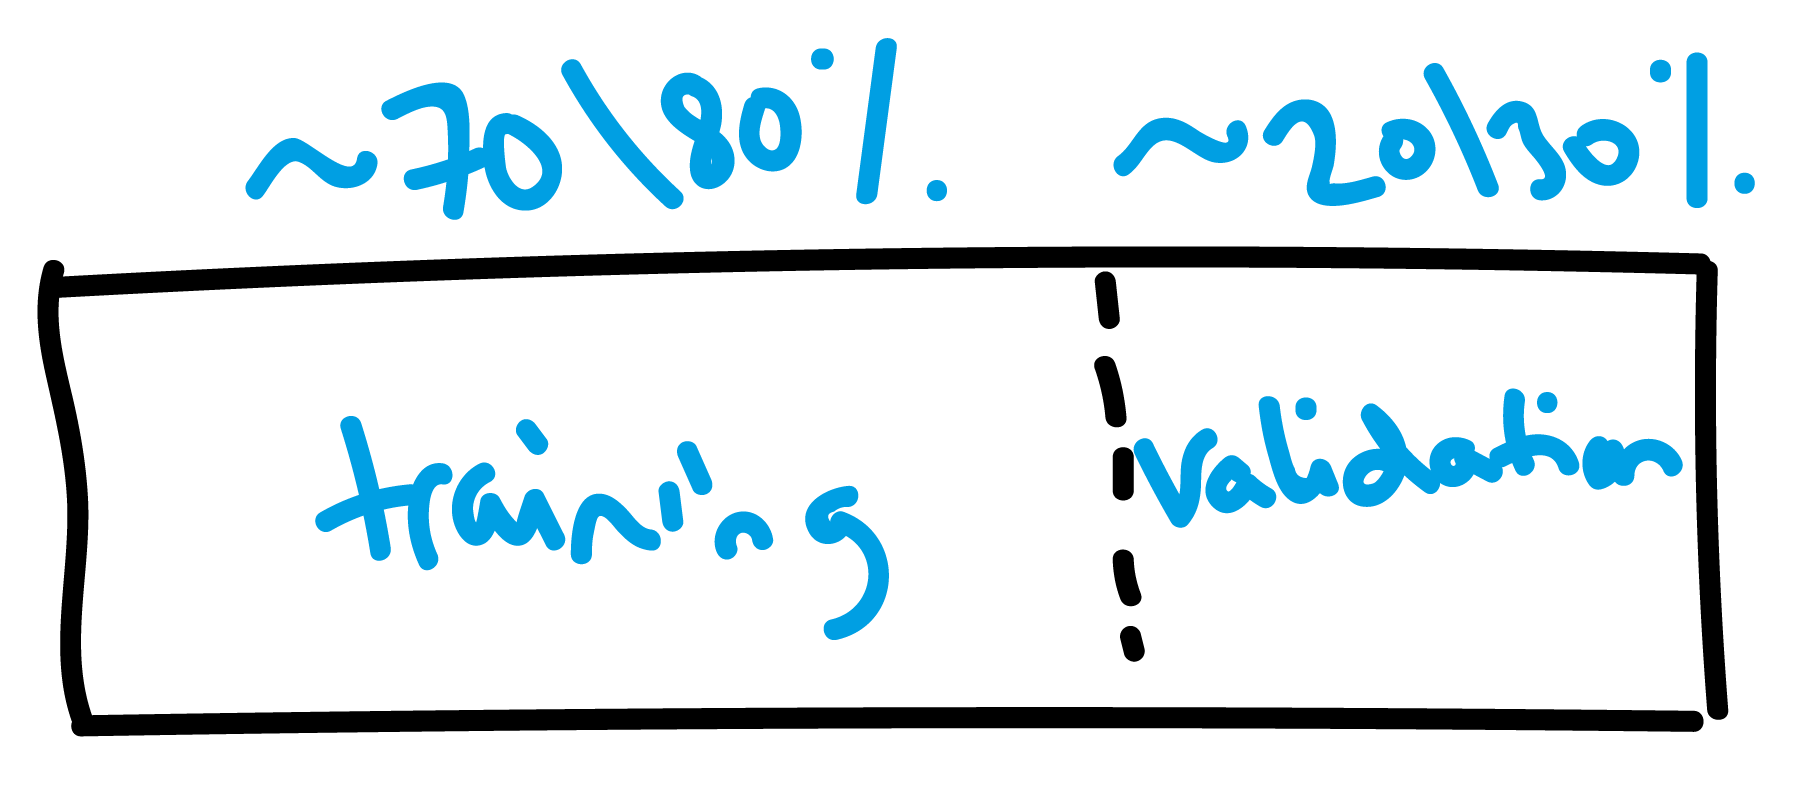 ~70\80% ~20\30%
training validation